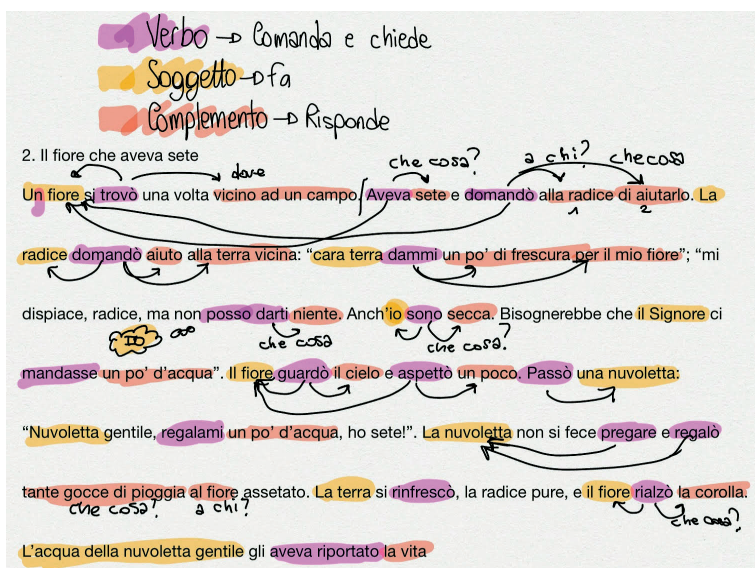 Verbo → Comanda e chiede
Soggetto → fa
Complemento → Risponde
2. Il fiore che aveva sete
dove che cosa? a chi? che cosa
Un fiore si trovò una volta vicino ad un campo. Aveva sete e domandò alla radice di aiutarlo. La
1 2
radice domandò aiuto alla terra vicina: “cara terra dammi un po’ di frescura per il mio fiore”; “mi
dispiace, radice, ma non posso darti niente. Anch’io sono secca. Bisognerebbe che il Signore ci
IO che cosa che cosa?
mandasse un po’ d’acqua”. Il fiore guardò il cielo e aspettò un poco. Passò una nuvoletta:
“Nuvoletta gentile, regalami un po’ d’acqua, ho sete!”. La nuvoletta non si fece pregare e regalò
tante gocce di pioggia al fiore assetato. La terra si rinfrescò, la radice pure, e il fiore rialzò la corolla.
che cosa? a chi? che cosa?
L’acqua della nuvoletta gentile gli aveva riportato la vita